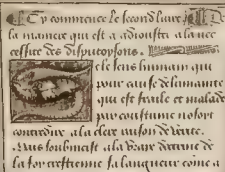 Cy commence le second livre
la maniere qui est a adiouster a la nec
cessite des disputoysons.
e le sens humain qui
pour cause de lumante
qui est fraile et malade
par coustume no sort
contredire a la clere raison de verite
Mais soubmeist a la vraie doctrine de
la foy crestienne sa langueur come a